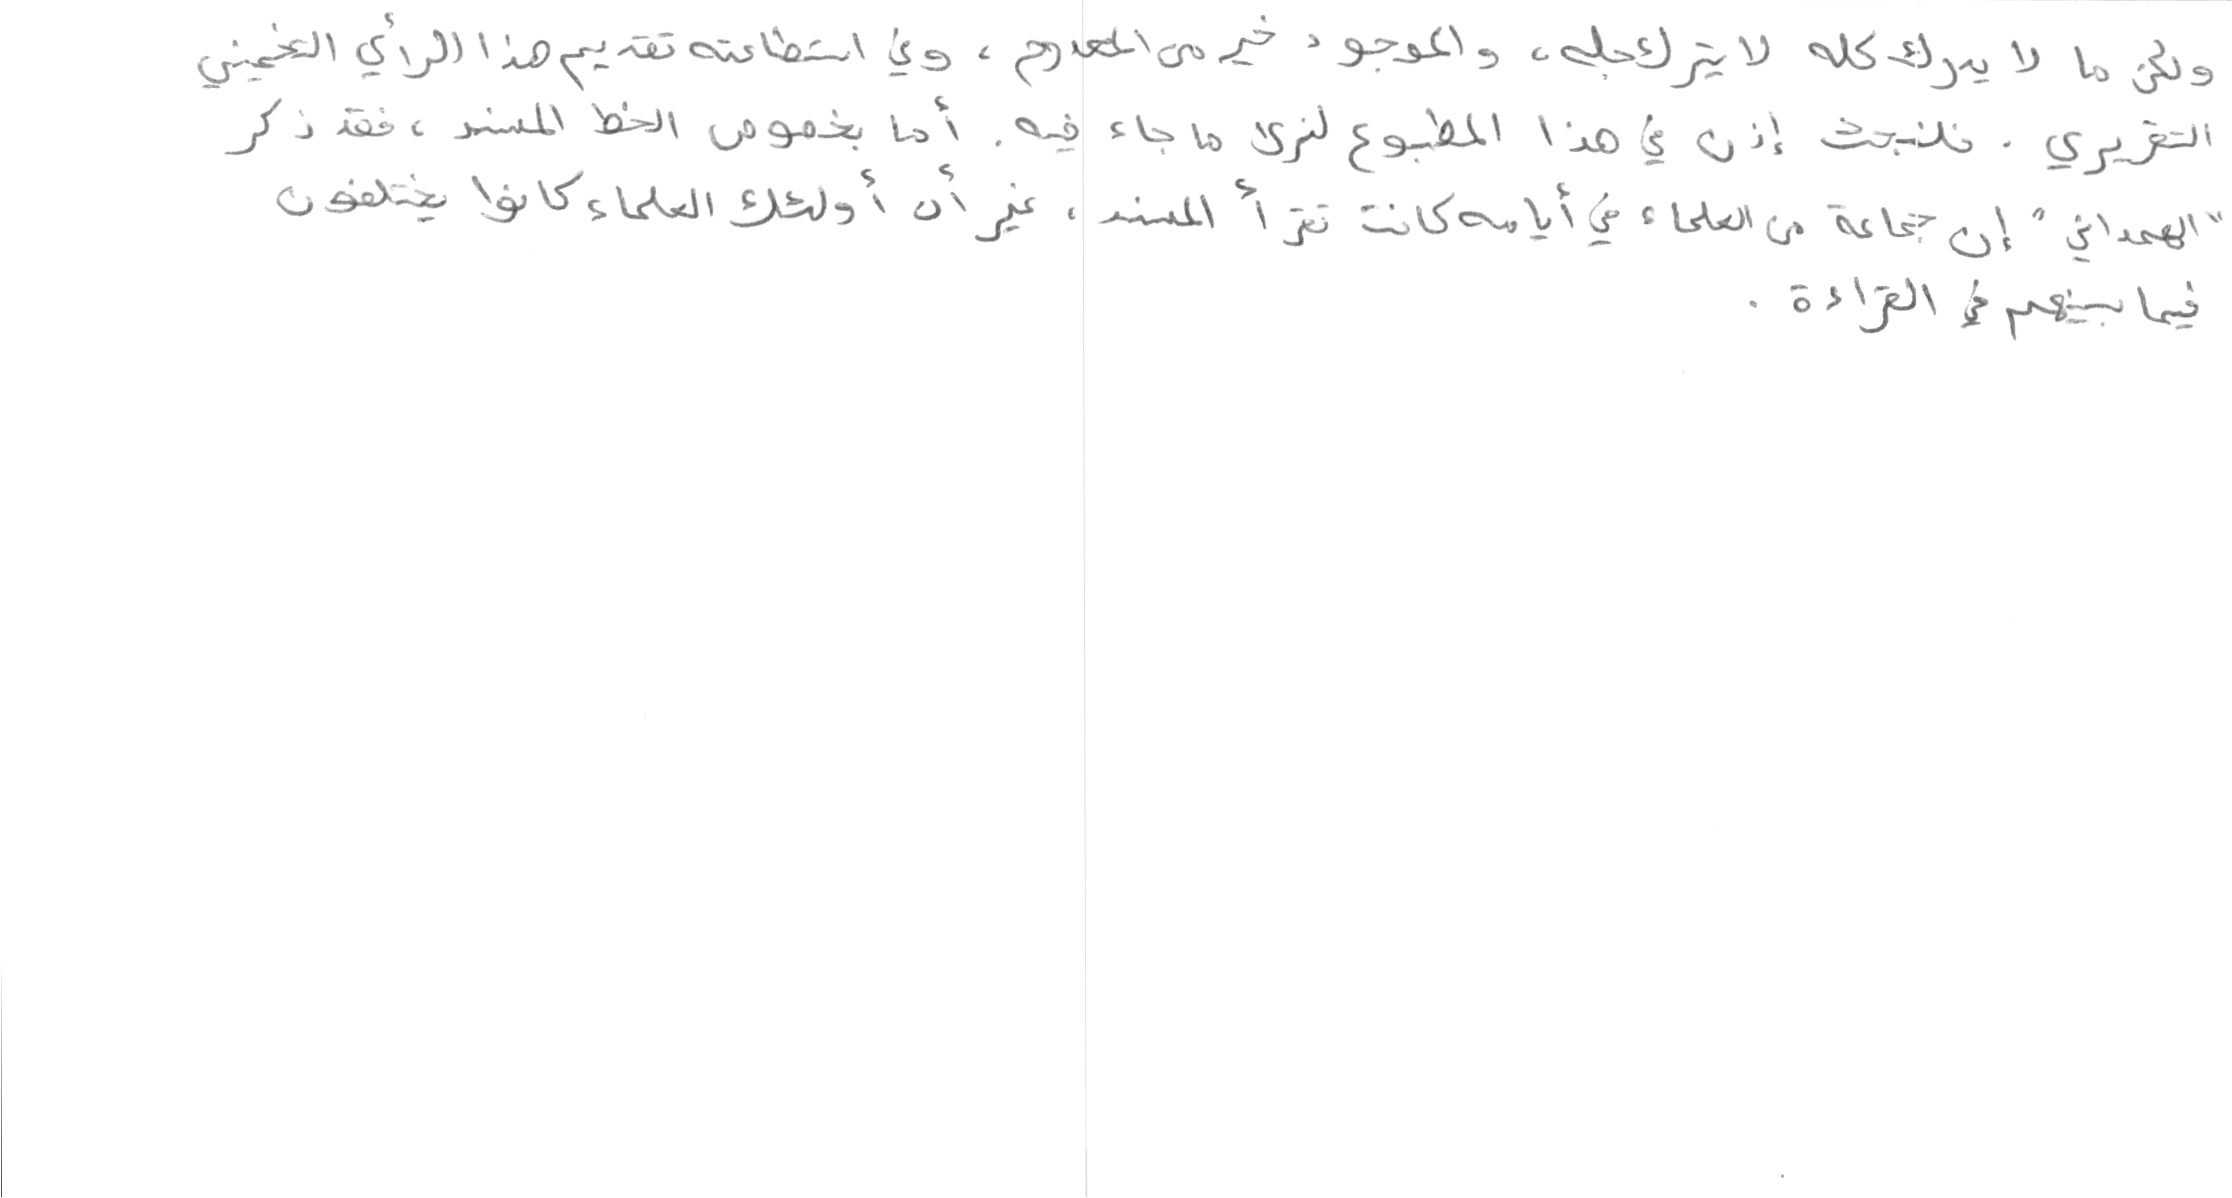 ولكن ما لا يدرك كله لا يترك جله، والموجود خير من المعدوم، وفي استطاعته تقديم هذا الرأي التخميني
التقريري. فلنبحث إذن في هذا المطبوع لنرى ما جاء فيه. أما بخصوص الخط المسند، فقد ذكر
"الهمداني" إن جماعة من العلماء في أيامه كانت تقرأ المسند، غير أن أولئك العلماء كانوا يختلفون
فيما بينهم في القراءة.